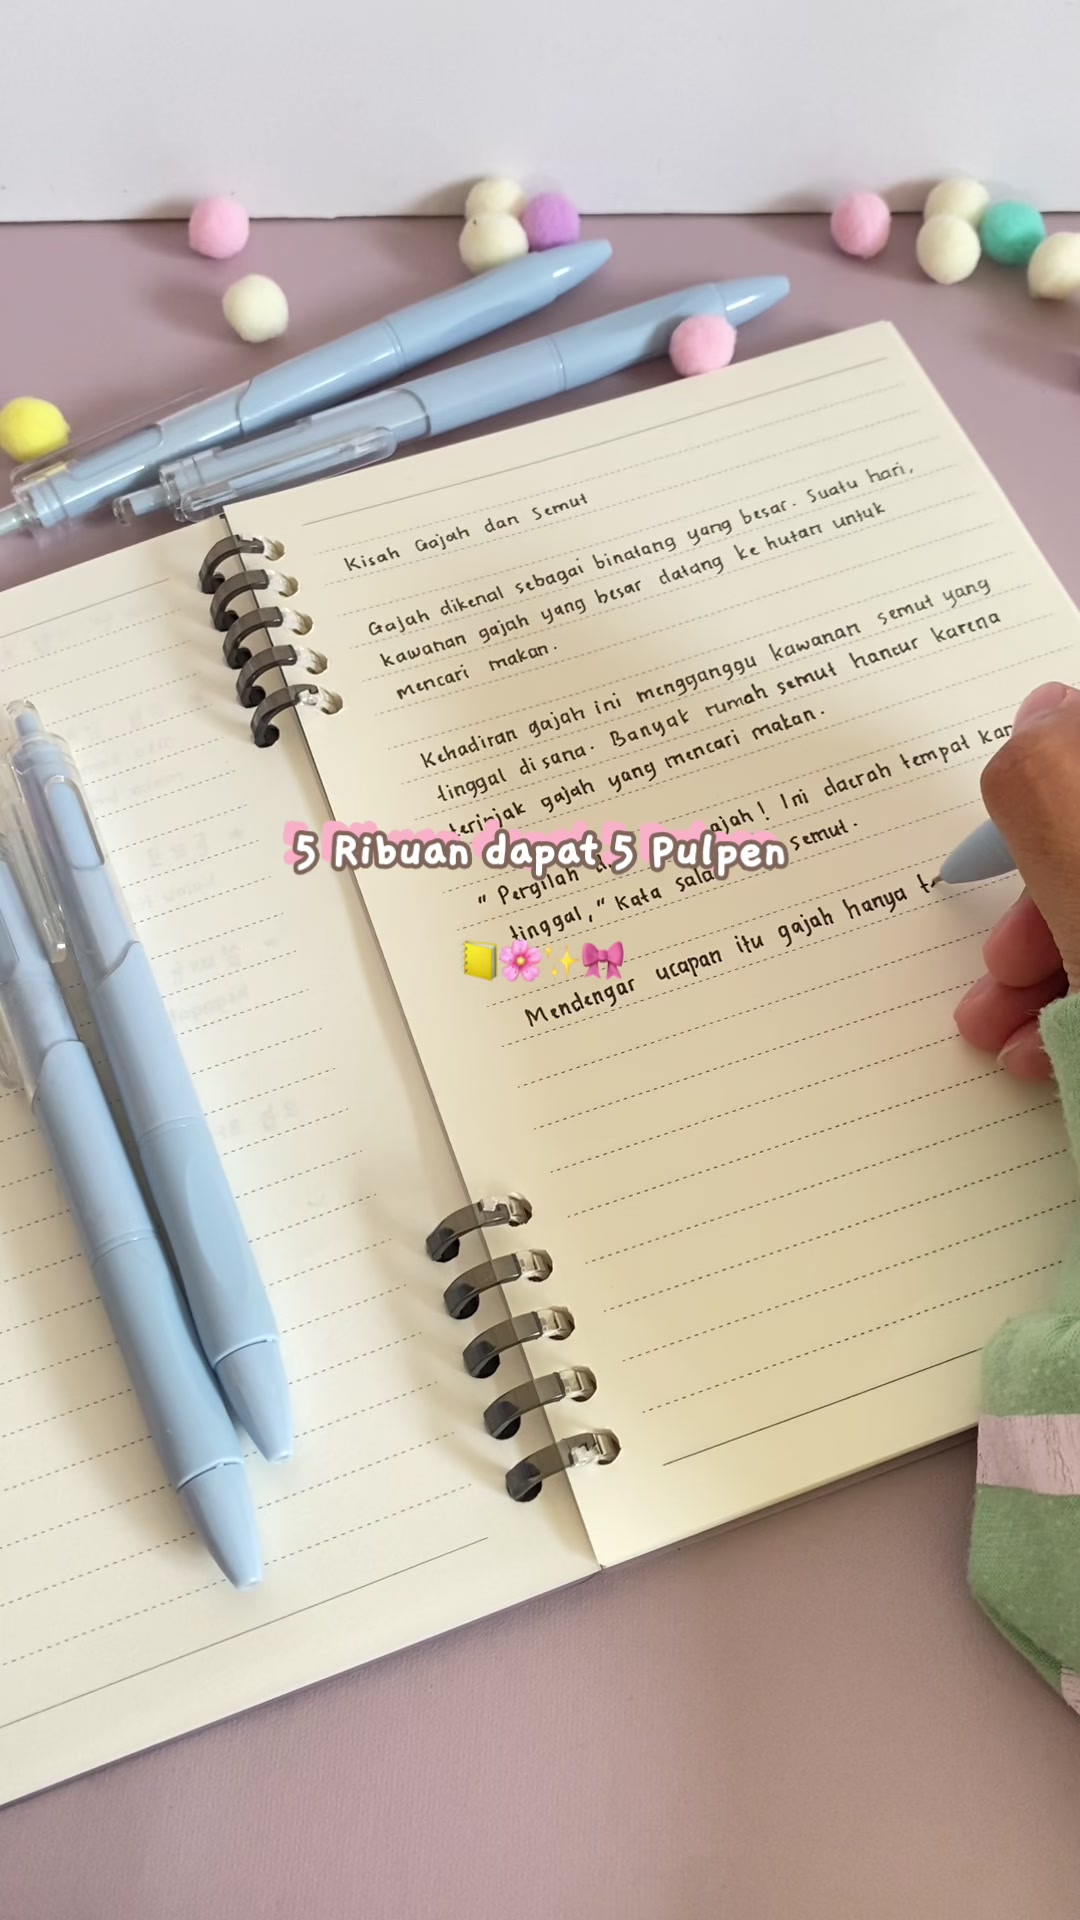 Kisah Gajah dan Semut
Gajah dikenal sebagai binatang yang besar. Suatu hari,
kawanan gajah yang besar datang ke hutan untuk
mencari makan.
Kehadiran gajah ini mengganggu kawanan semut yang
tinggal di sana. Banyak rumah semut hancur karena
terinjak gajah yang mencari makan.
5 Ribuan dapat 5 Pulpen
"Pergilah gajah! Ini daerah tempat
tinggal," kata semut.
Mendengar ucapan itu gajah hanya